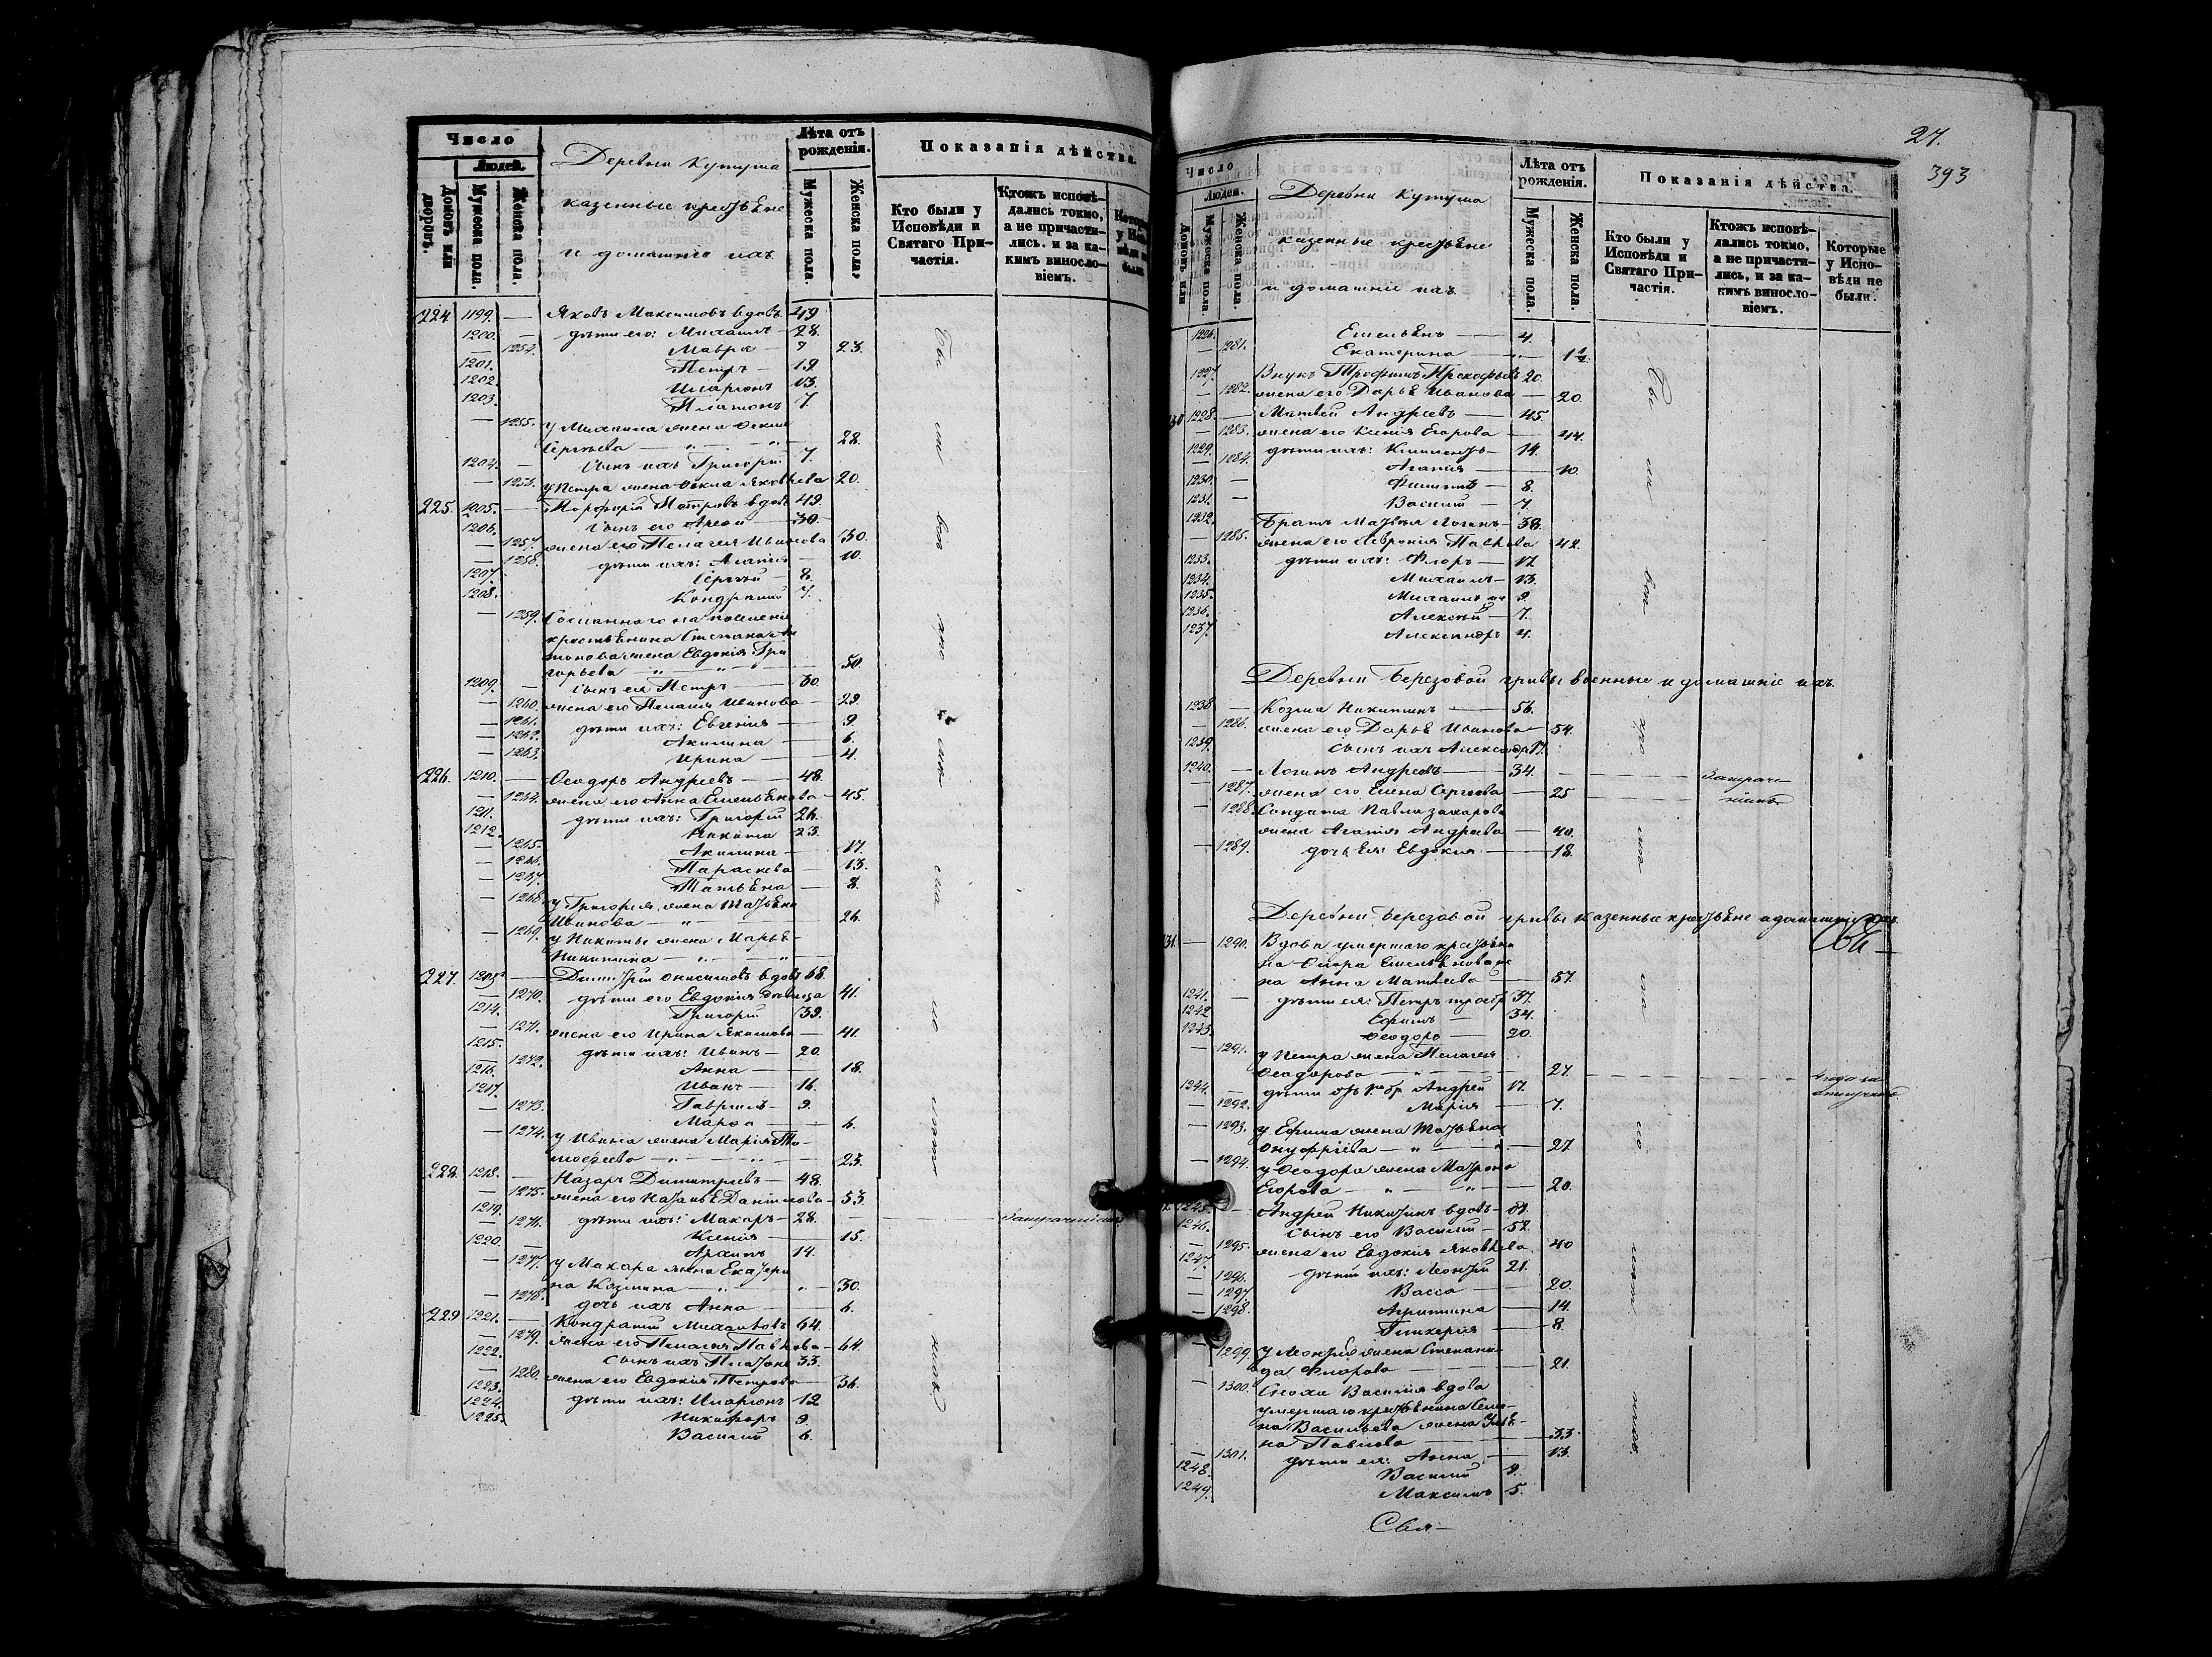 Число
Людей.
Домовъ или дворовъ.
Мужеска пола.
Женска пола.
Деревни Кутуша
казенные крестьяне
и домашніе ихъ
Лѣта отъ рожденія.
Мужеска пола.
Женска пола.
Показанія дѣйства.
Кто были у Исповѣди и Святаго Причастія.
Ктожъ исповѣдались токмо, а не причастились. и за какимъ винословіемъ.
224 1199. — Яковъ Максимовъ вдовъ 49
1200. дѣти его: Михаилъ — 28.
— 1254. Мавра — 23.
1201. Петръ — 19
1202. Иларіонъ 13.
1203. Платонъ 7.
— 1255. у Михаила жена
Сергѣева — 28.
1204. — сынъ ихъ Григорій 7.
— 1256. у Петра жена Яковлева 20.
225. 1205. — Порфирій Петровъ вдовъ 49.
1206. сынъ его 30.
— 1257. жена его Пелагея Иванова 30.
— 1258. дѣти ихъ: Агапія — 10.
1207. Сергѣй — 8.
1208. Кондратій 7.
— 1259. Сосланнаго на поселеніе
крестьянина Степана
жена Евдокія Гри
горьева — 50.
1209. — сынъ ея Петръ — 30.
— 1260. жена его Пелагія Иванова — 29.
— 1261. дѣти ихъ: Евгенія — 9.
— 1262. Акилина — 6.
— 1263. Ирина — 4.
226. 1210. — Ѳеодоръ Андреевъ — 48.
— 1264. жена его Анна Емельянова — 45.
1211. дѣти ихъ: Григорій 26.
1212. Никита 23.
— 1265. Акилина — 17.
— 1266. Параскева — 13.
— 1267. Татьяна — 8.
— 1268. у Григорія жена Татьяна
Иванова — 26.
— 1269. у Никиты жена Марья
Никитина —
227. — Димитрій Онисимовъ вдовъ 68.
— 1270. дѣти его Евдокія дѣвица 41.
1214. Григорій 39.
— 1271. жена его Ирина Якимова — 41.
1215. дѣти ихъ: Иванъ — 20.
— 1272. Анна — 18.
1216. Иванъ — 16.
1217. Гавріилъ — 9.
— 1273. Марѳа — 6.
— 1274. у Ивана жена Марія Ти
моѳеева — 23.
228. 1218. — Назаръ Димитріевъ — 48.
— 1275. жена его Наталья Данилова — 53.
1219. дѣти ихъ: Макаръ — 28.
— 1276. Ксенія — 15.
1220. — Архипъ 14.
— 1277. у Макара жена Екатери
на Козмина — 30.
— 1278. дочь ихъ Анна — 6.
229 1221. — Кондратій Михайловъ 64.
— 1279. жена его Пелагея Павлова — 64.
1222. сынъ ихъ Платонъ 33.
— 1280. жена его Евдокія Петрова — 36.
1223. дѣти ихъ: Иларіонъ 12
1224. Никифоръ 9.
1225. Василій 6.
27.
393
Число
Людей.
Домовъ или
Мужеска пола
Женска пола.
Деревни Кутуша
казенные крестьяне
и домашніе ихъ
Лѣта отъ рожденія.
Мужеска пола.
Женска пола.
Показанія дѣйства.
Кто были у Исповѣди и Святаго Причастія.
Ктожъ исповѣдались токмо, а не причастились, и за какимъ винословіемъ.
Которые у Исповѣди не были.
1226. Емельянъ — 4.
— 1281. Екатерина — 1 1/2.
1227. Внукъ Трофимъ Прокофьевъ 20.
— 1282. жена его Дарья Иванова — 20.
1228. — Матвей Андреевъ — 45.
— 1283. жена его Ксенія Егорова — 44.
1229. дѣти ихъ: Климентъ — 14.
— 1284. Агапія — 10.
1230. — Филиппъ — 8.
1231. — Василій — 7.
1232. Братъ Матвея Логинъ — 38.
— 1285. жена его Павлова 42.
1233. дѣти ихъ: Флоръ — 17
1234. Михаилъ — 13.
1235. Михаилъ 9.
1236. Алексѣй — 7.
1237. Александръ 4.
Деревни Березовой гривы военные и домашніе ихъ.
1238 — Козма Никитинъ — 56.
— 1286. жена его Дарья Иванова — 54.
1239. сынъ ихъ Александръ 17.
1240. — Логинъ Андреевъ — 34.
— 1287. жена его Елена Сергеева — 25
— 1288. Солдатъ Павла Захарова
жена Агапія Андреева — 40.
— 1289. дочь ея: Евдокія — 18.
Деревни Березовой гривы казенные крестьяне и домашніе ихъ.
— 1290. Вдова умершаго крестьяни
на Емельянова же
на Анна Матвеева — 57.
1241. — дѣти ея: Петръ 37.
1242 Ефимъ — 34.
1243 Ѳеодоръ — 20.
— 1291. у Петра жена Пелагея
Ѳеодорова — 27.
1244. — дѣти отъ 1го бр. Андрей 17.
— 1292. Марія — 7.
— 1293. у Ефима жена Татьяна
Онуфріева — 27.
— 1294. у Ѳеодора жена Матрона
Егорова — 20.
1245. — Андрей Никитинъ вдовъ
1246. сынъ его Василій — 52.
— 1295. жена его Евдокія Яковлева 40
1247. дѣти ихъ: Леонтій 21.
— 1296. Васса — 20.
— 1297. Агрипина — 14.
— 1298. Гликерія — 8.
— 1299. у Леонтія жена Степани
да Флорова — 21.
— 1300. Сноха Василія вдова
умершаго крестьянина Семе
на Васильева жена Улья
на Павлова — 33.
— 1301. дѣти ея: Анна — 13.
1248. Василій 9.
1249. Максимъ 5.
Свя—